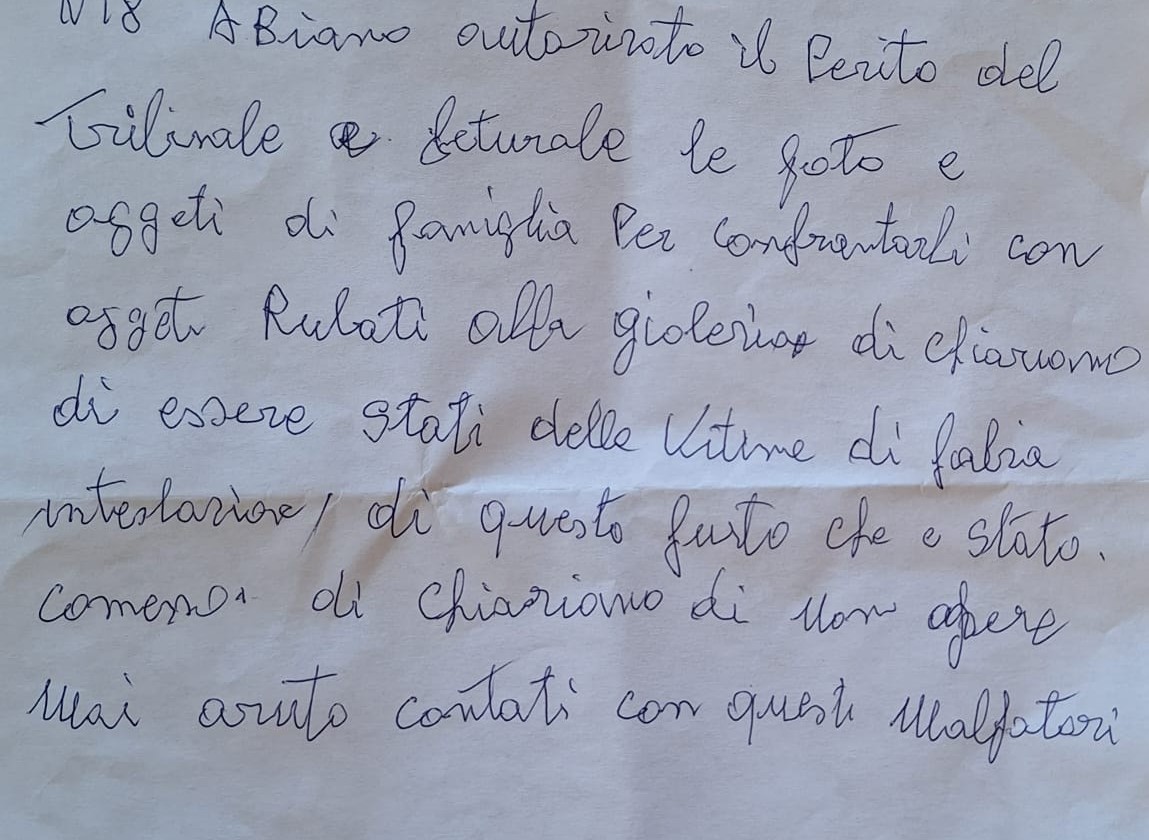 N 18 ABiamo autorizato il Perito del
Tribinale e feturale le foto e
oggeti di famiglia Per confrontarli con
oggeti Rubati alla gioleria di chiariamo
di essere stati delle Vitime di falsa
intestazione di questo furto che e stato.
comesso di chiariamo di non avere
Mai avuto contati con questi Malfatori